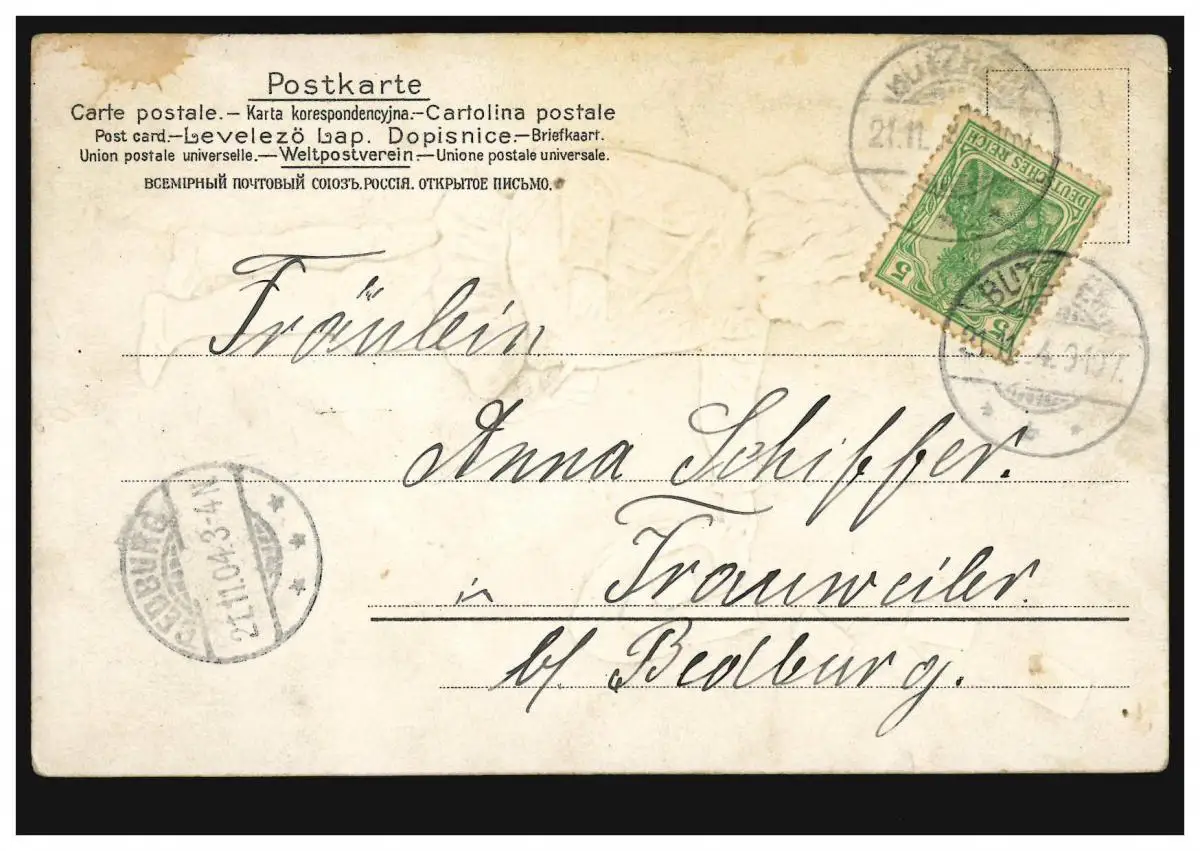 Postkarte
Carte postale.— Karta korespondencyjna.—Cartolina postale
Post card.—Levelező Lap. Dopisnice.—Briefkaart.
Union postale universelle.—Weltpostverein—Unione postale universale.
ВСЕМІРНЫЙ ПОЧТОВЫЙ СОЮЗЪ.РОССІЯ. ОТКРЫТОЕ ПИСЬМО.
21.11.
DEUTSCHES REICH
5
5
Fräulein
Anna Schiffer.
in Frauweiler.
b/ Bedburg.
BEDBURG
21.11.04.3-4N